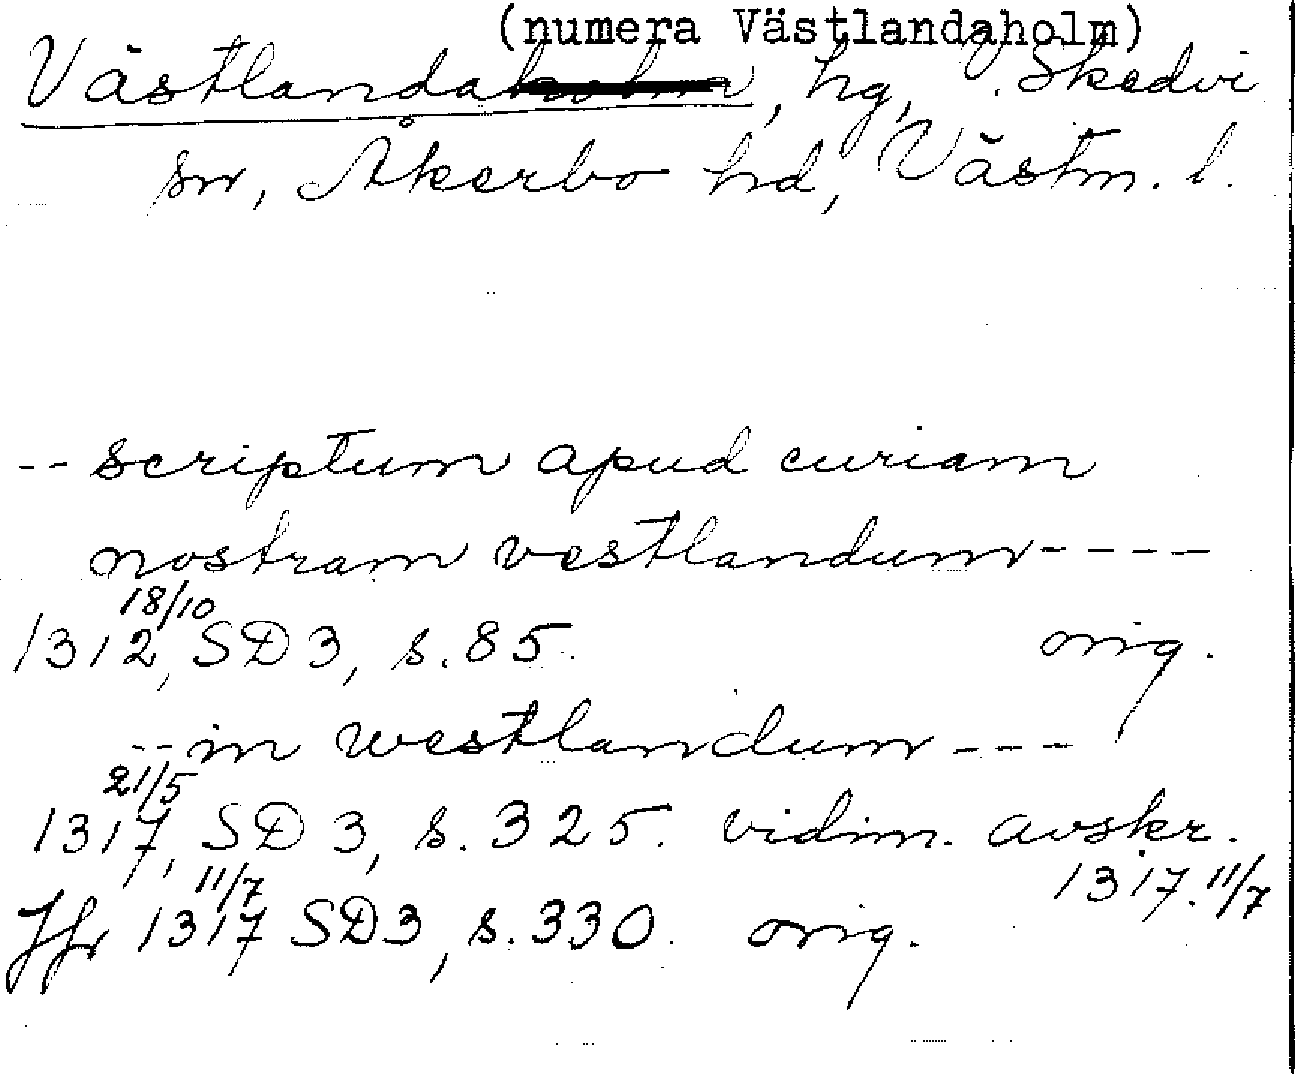 (numera Västlandaholm)
Västlandaholm, hg, V. Skedvi
sn, Åkerbo hd, Västm. l.
-- scriptum apud curiam
nostram vestlandum ----
18/10
1312, SD 3, s. 85. orig.
-- in westlandum ---
21/5
1317, SD 3, s. 325. vidim. avskr.
1317. 11/7
11/7
Jfr 1317 SD3, s. 330. orig.